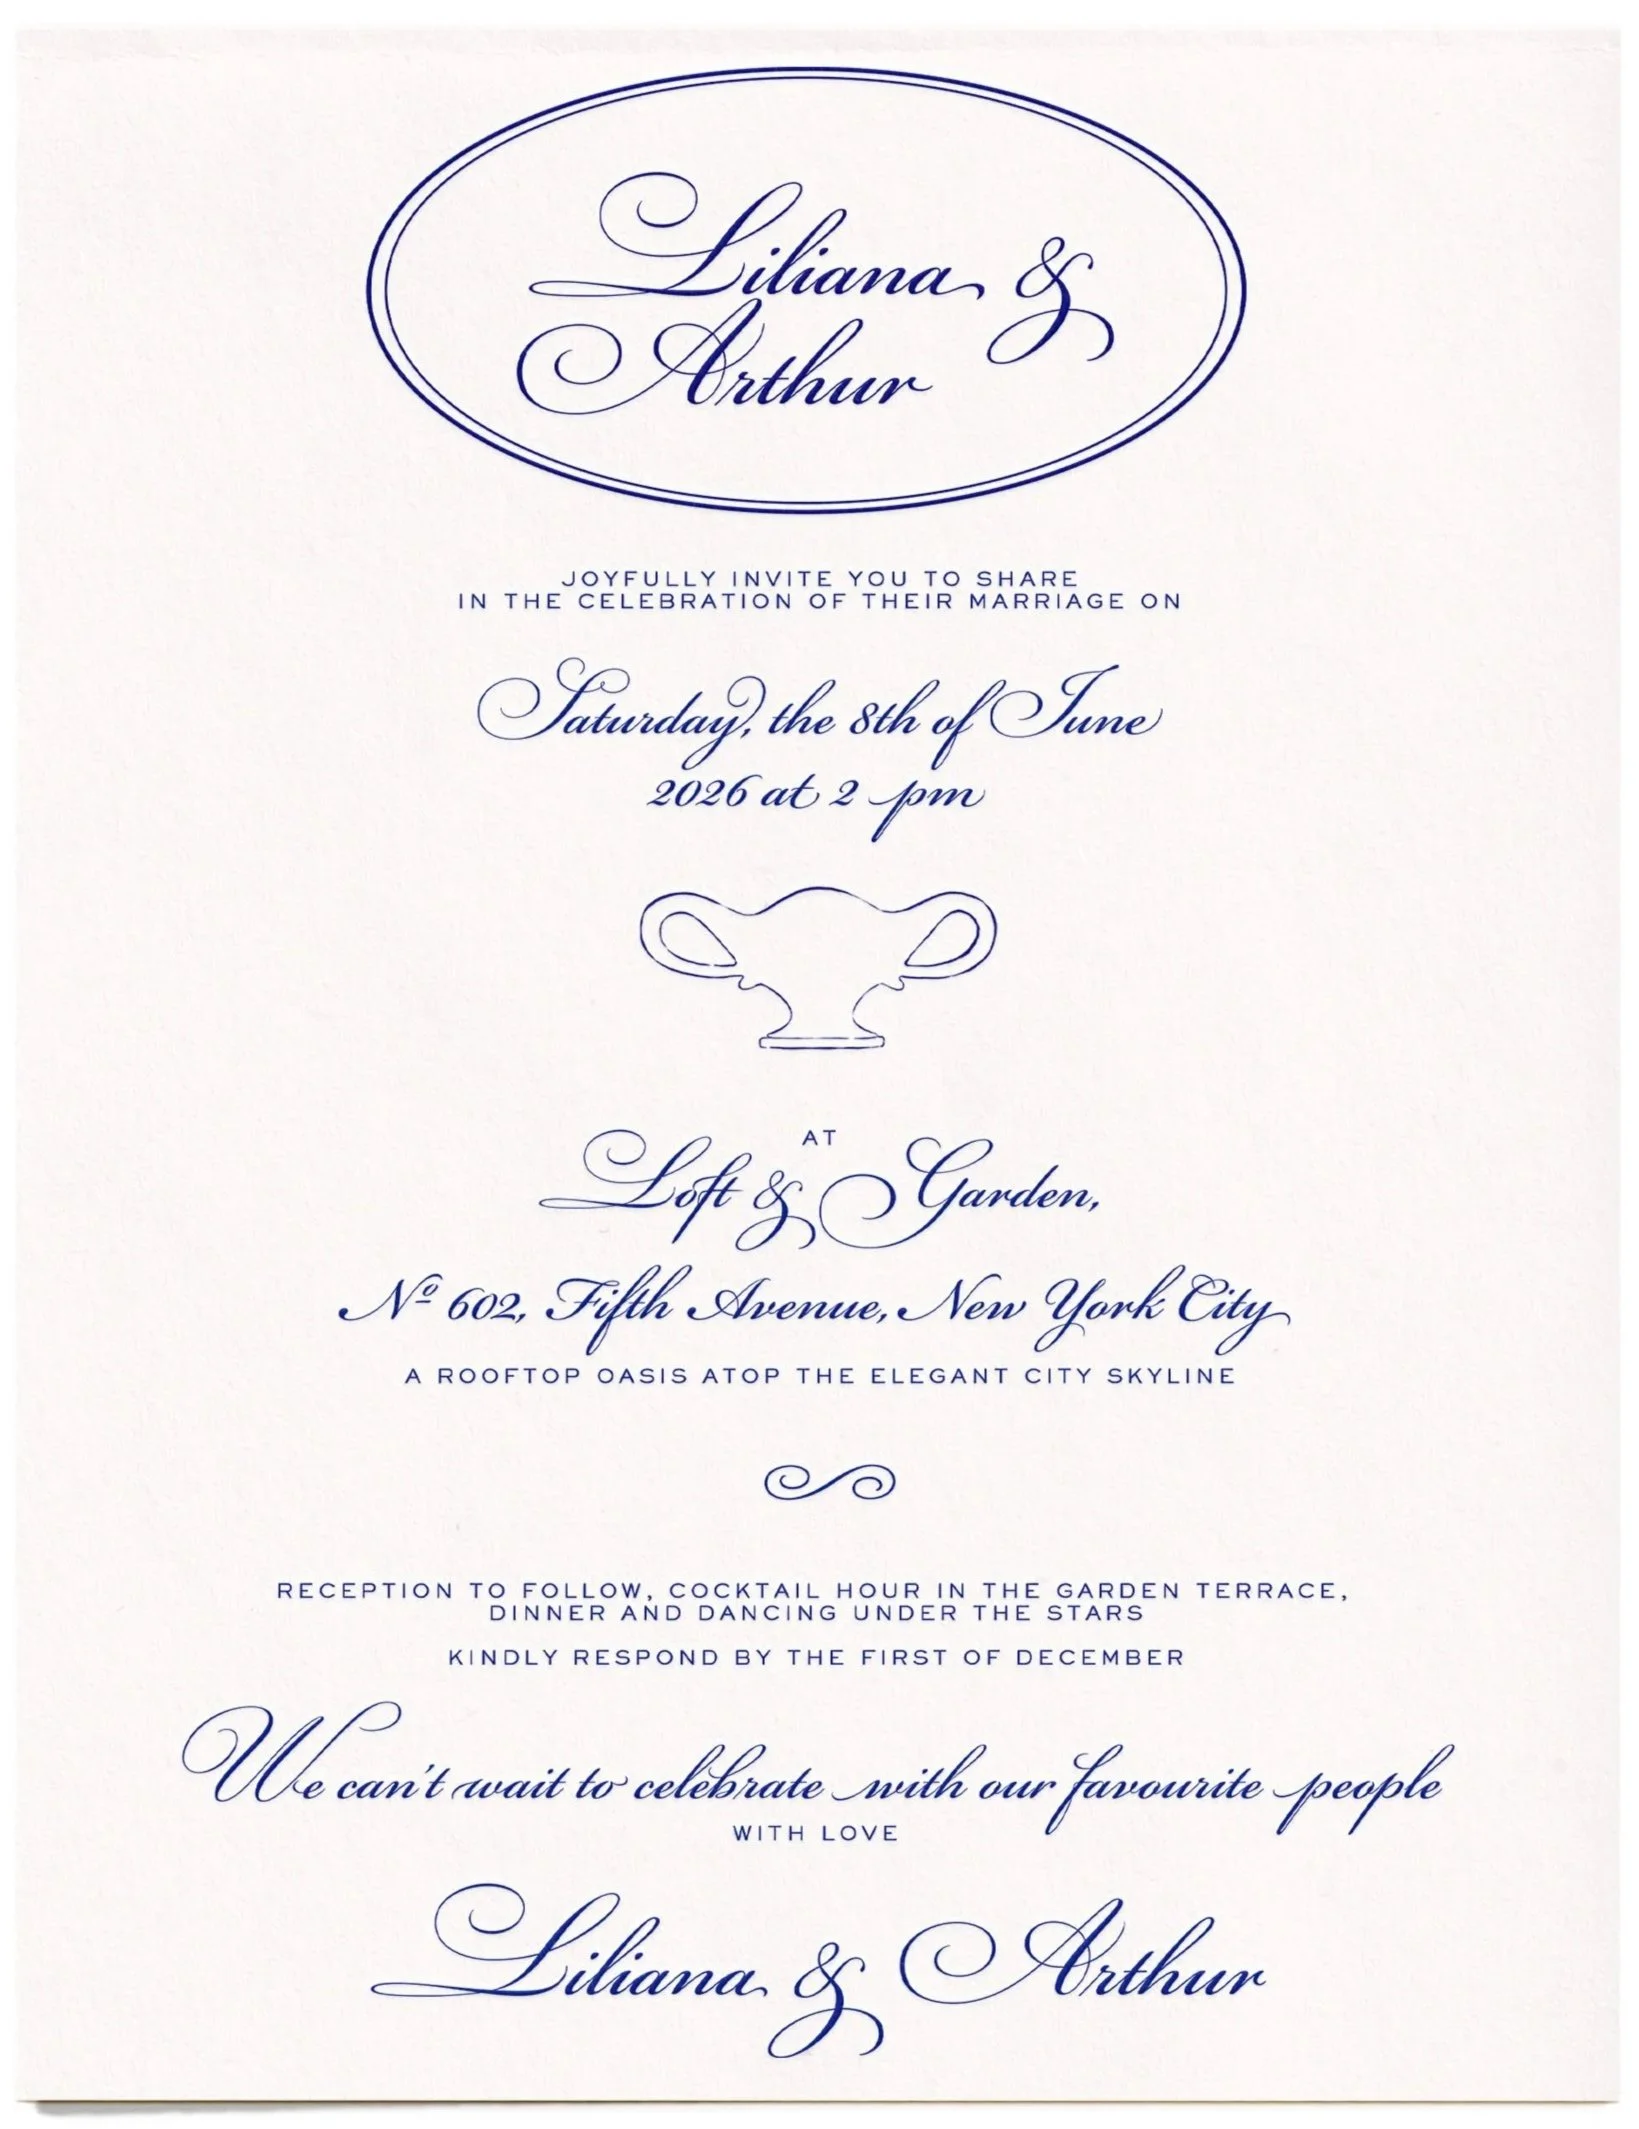 Liliana &
Arthur
JOYFULLY INVITE YOU TO SHARE
IN THE CELEBRATION OF THEIR MARRIAGE ON
Saturday, the 8th of June
2026 at 2 pm
AT
Loft & Garden,
Nº 602, Fifth Avenue, New York City
A ROOFTOP OASIS ATOP THE ELEGANT CITY SKYLINE
RECEPTION TO FOLLOW, COCKTAIL HOUR IN THE GARDEN TERRACE,
DINNER AND DANCING UNDER THE STARS
KINDLY RESPOND BY THE FIRST OF DECEMBER
We can't wait to celebrate with our favourite people
WITH LOVE
Liliana & Arthur